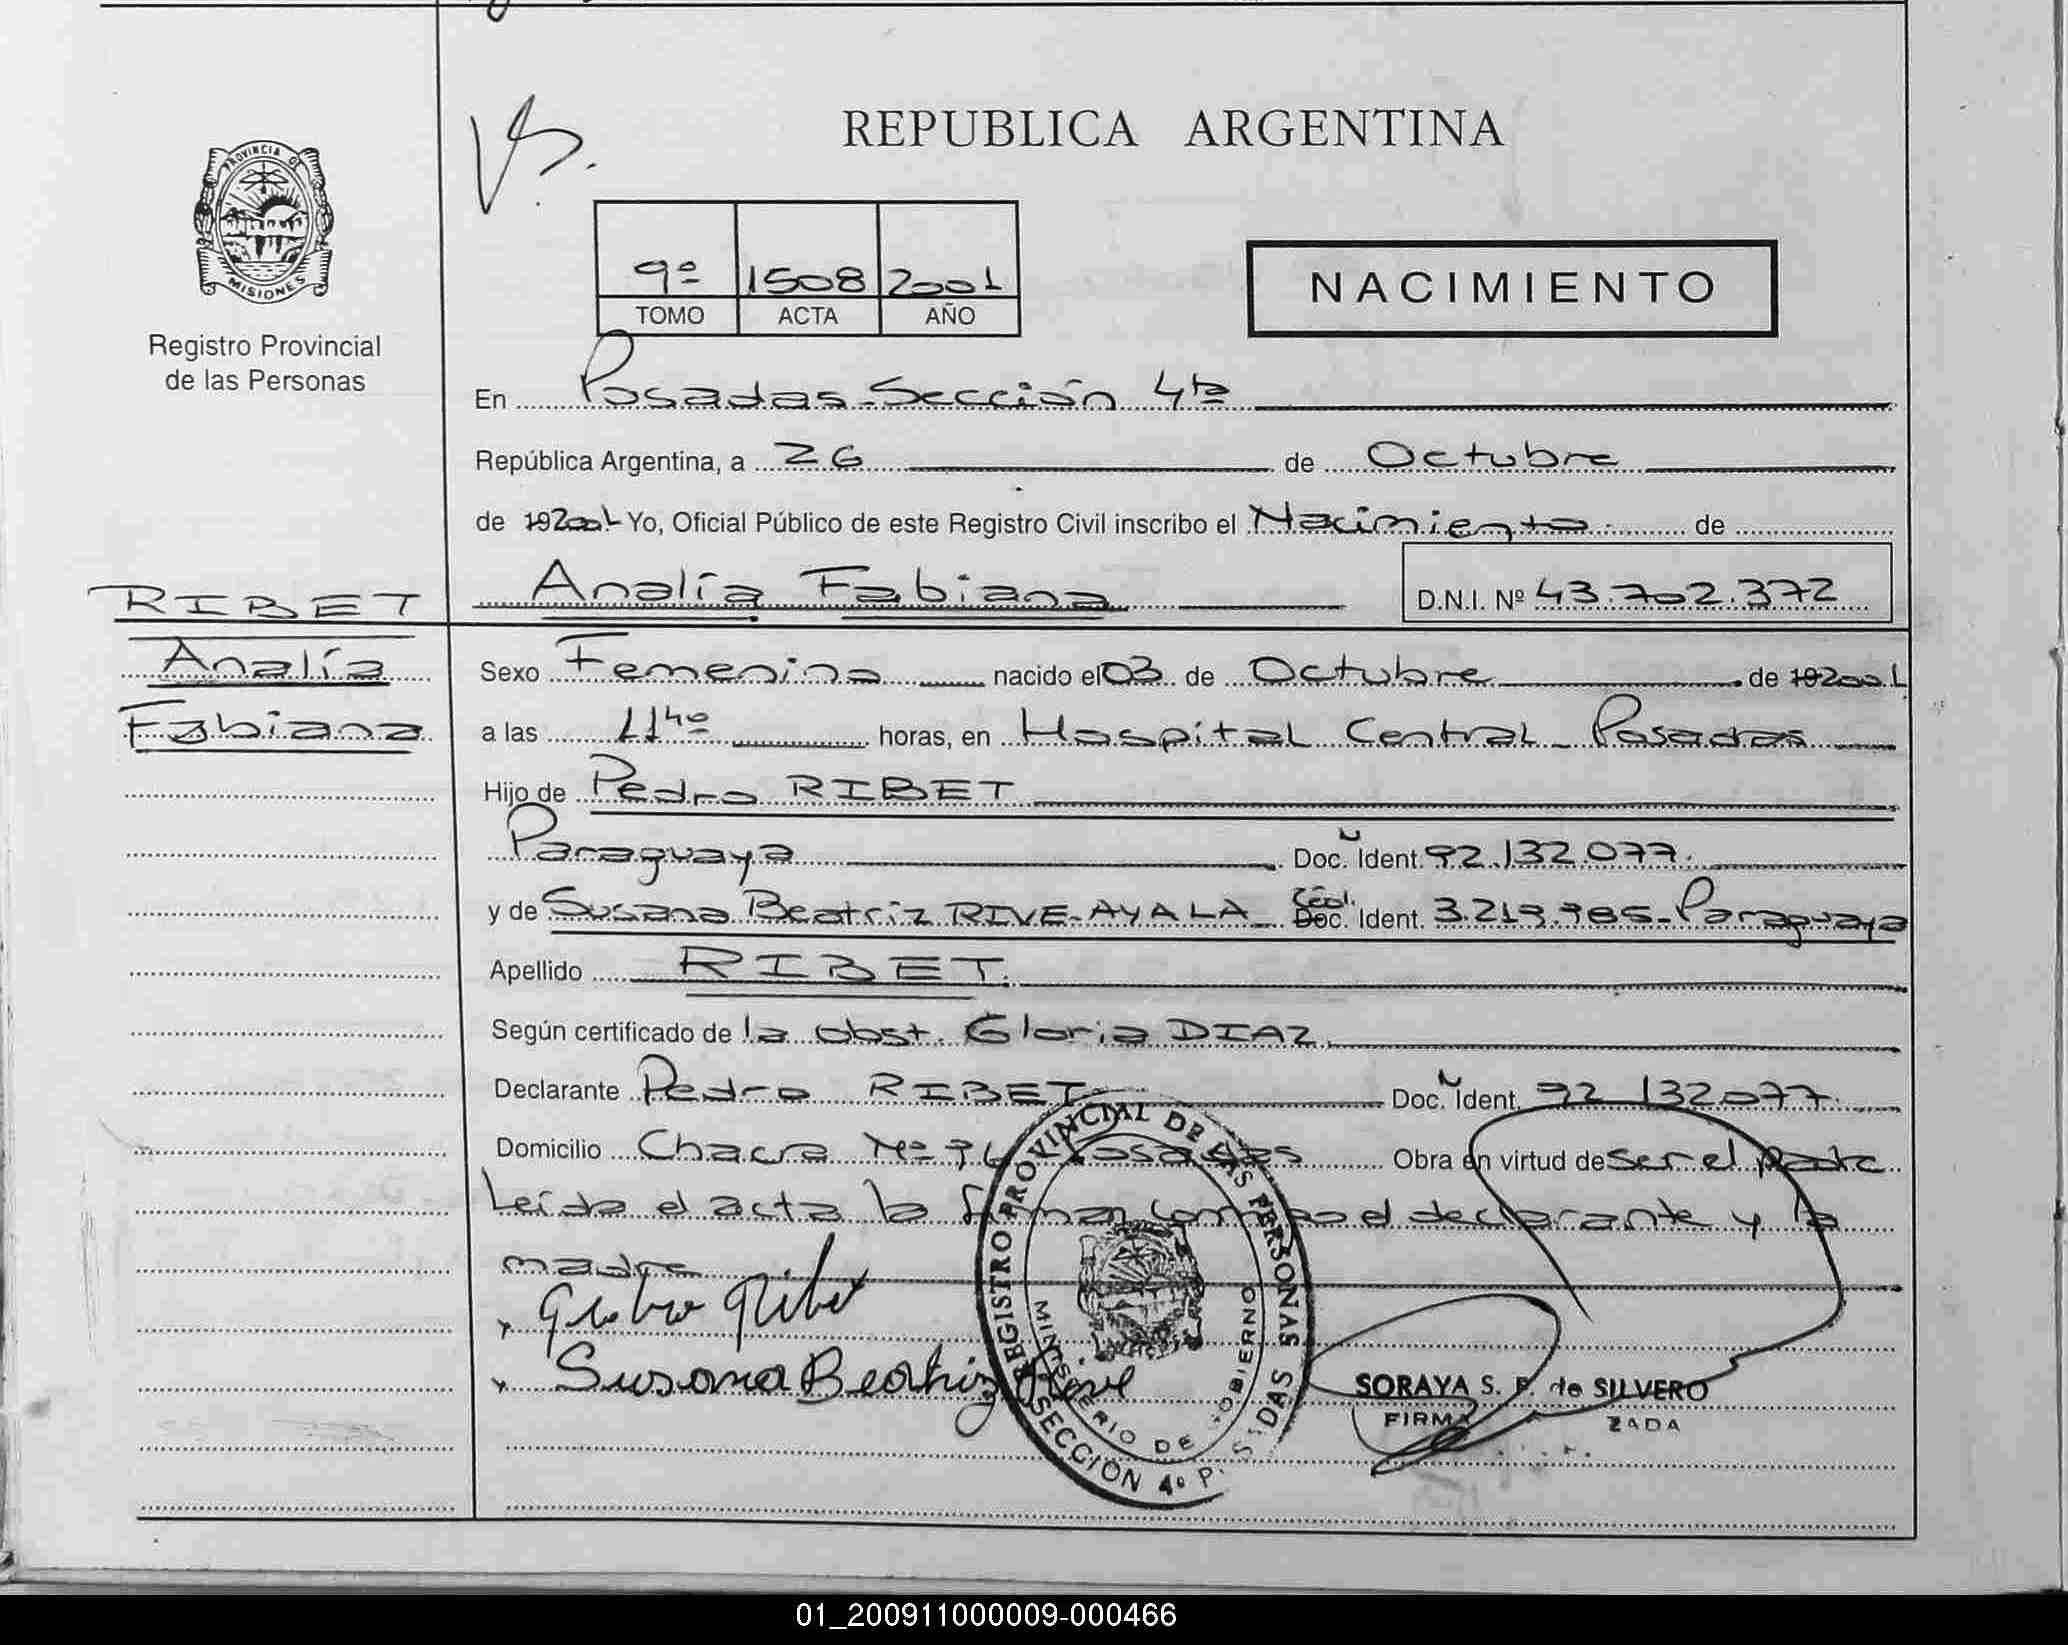 REPUBLICA ARGENTINA
PROVINCIA DE MISIONES
Registro Provincial
de las Personas
9º 1508 2001
TOMO ACTA AÑO
NACIMIENTO
En Posadas-Sección 4ta
República Argentina, a 26 de Octubre
de 192001 Yo, Oficial Público de este Registro Civil inscribo el Nacimiento de
Analía Fabiana D.N.I. Nº 43.702.372
RIBET
Analía
Fabiana
Sexo Femenino nacido el 03 de Octubre de 192001
a las 11 40 horas, en Hospital Central - Posadas
Hijo de Pedro RIBET
Paraguaya Doc. Ident. 92.132.077.
y de Susana Beatriz RIVE-AYALA Céd. Doc. Ident. 3.219.985-Paraguaya
Apellido RIBET.
Según certificado de la obst. Gloria DIAZ.
Declarante Pedro RIBET Doc. Ident. 92 132077.
Domicilio Chacra Nº Posadas Obra en virtud de ser el padre
Leída el acta la firman el declarante y la
madre
Susana Beatriz Rive
REGISTRO PROVINCIAL DE LAS PERSONAS
MINISTERIO DE GOBIERNO
SECCION 4º POSADAS
SORAYA S. de SILVERO
FIRMA
01_200911000009-000466